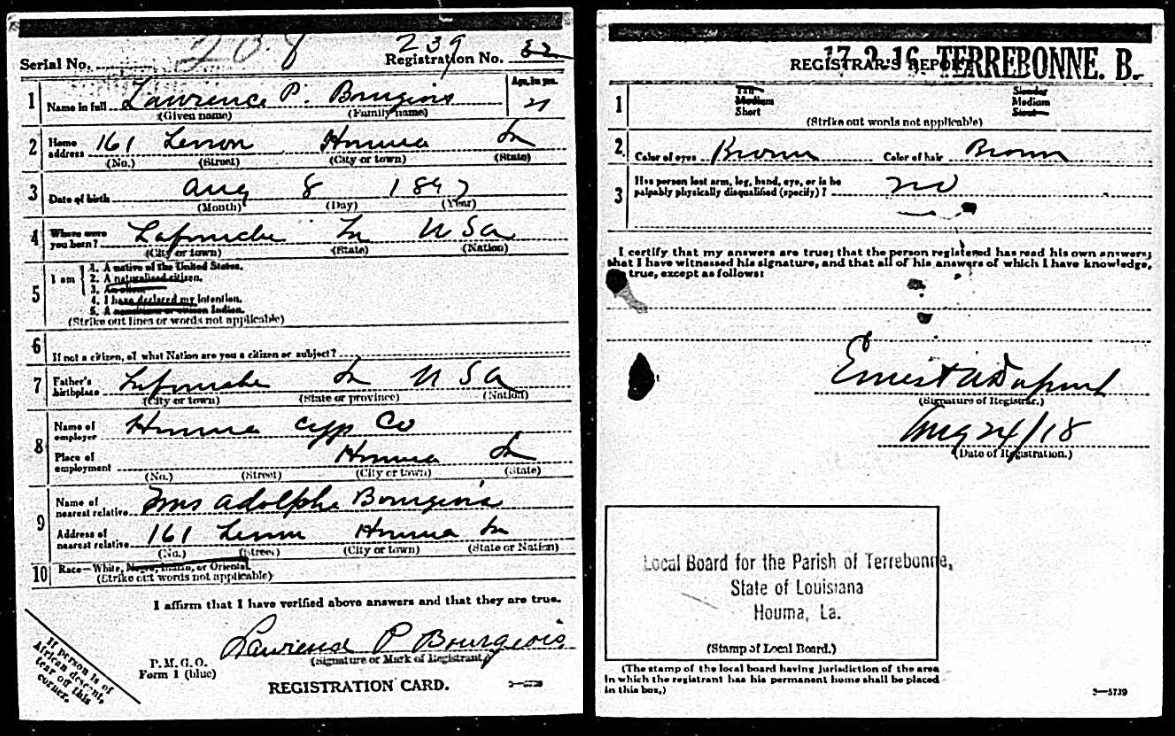 208
239
Serial No. Registration No. 32
Age, in yrs.
1 Name in full Lawrence P. Bourgeois 21
(Given name) (Family name)
2 Home address 161 Lenon Houma La
(No.) (Street) (City or town) (State)
3 Date of birth Aug 8 1897
(Month) (Day) (Year)
4 Where were you born? Lafourche La USA
(City or town) (State) (Nation)
5 I am
1. A native of the United States.
2. A naturalized citizen.
3. An alien.
4. I have declared my intention.
5. A noncitizen or citizen Indian.
(Strike out lines or words not applicable)
6 If not a citizen, of what Nation are you a citizen or subject?
7 Father's birthplace Lafourche La USA
(City or town) (State or province) (Nation)
8 Name of employer Houma Cyp Co
Place of employment Houma La
(No.) (Street) (City or town) (State)
9 Name of nearest relative Mrs Adolphe Bourgeois
Address of nearest relative 161 Lenon Houma La
(No.) (Street) (City or town) (State or Nation)
10 Race—White, Negro, Indian, or Oriental.
(Strike out words not applicable)
I affirm that I have verified above answers and that they are true.
Lawrence P Bourgeois
(Signature or Mark of Registrant)
P. M. G. O.
Form 1 (blue)
REGISTRATION CARD.
If person is of
African descent,
tear off this
corner.
17-2-16 TERREBONNE. B.
REGISTRAR'S REPORT
1 Tall Slender
Medium Medium
Short Stout
(Strike out words not applicable)
2 Color of eyes Brown Color of hair Brown
3 Has person lost arm, leg, hand, eye, or is he
palpably physically disqualified (specify)? no
I certify that my answers are true; that the person registered has read his own answers;
that I have witnessed his signature, and that all of his answers of which I have knowledge,
are true, except as follows:
Ernest A Dupont
(Signature of Registrar.)
Aug 24/18
(Date of Registration.)
Local Board for the Parish of Terrebonne,
State of Louisiana
Houma, La.
(Stamp of Local Board.)
(The stamp of the local board having jurisdiction of the area
in which the registrant has his permanent home shall be placed
in this box.)
3—5739